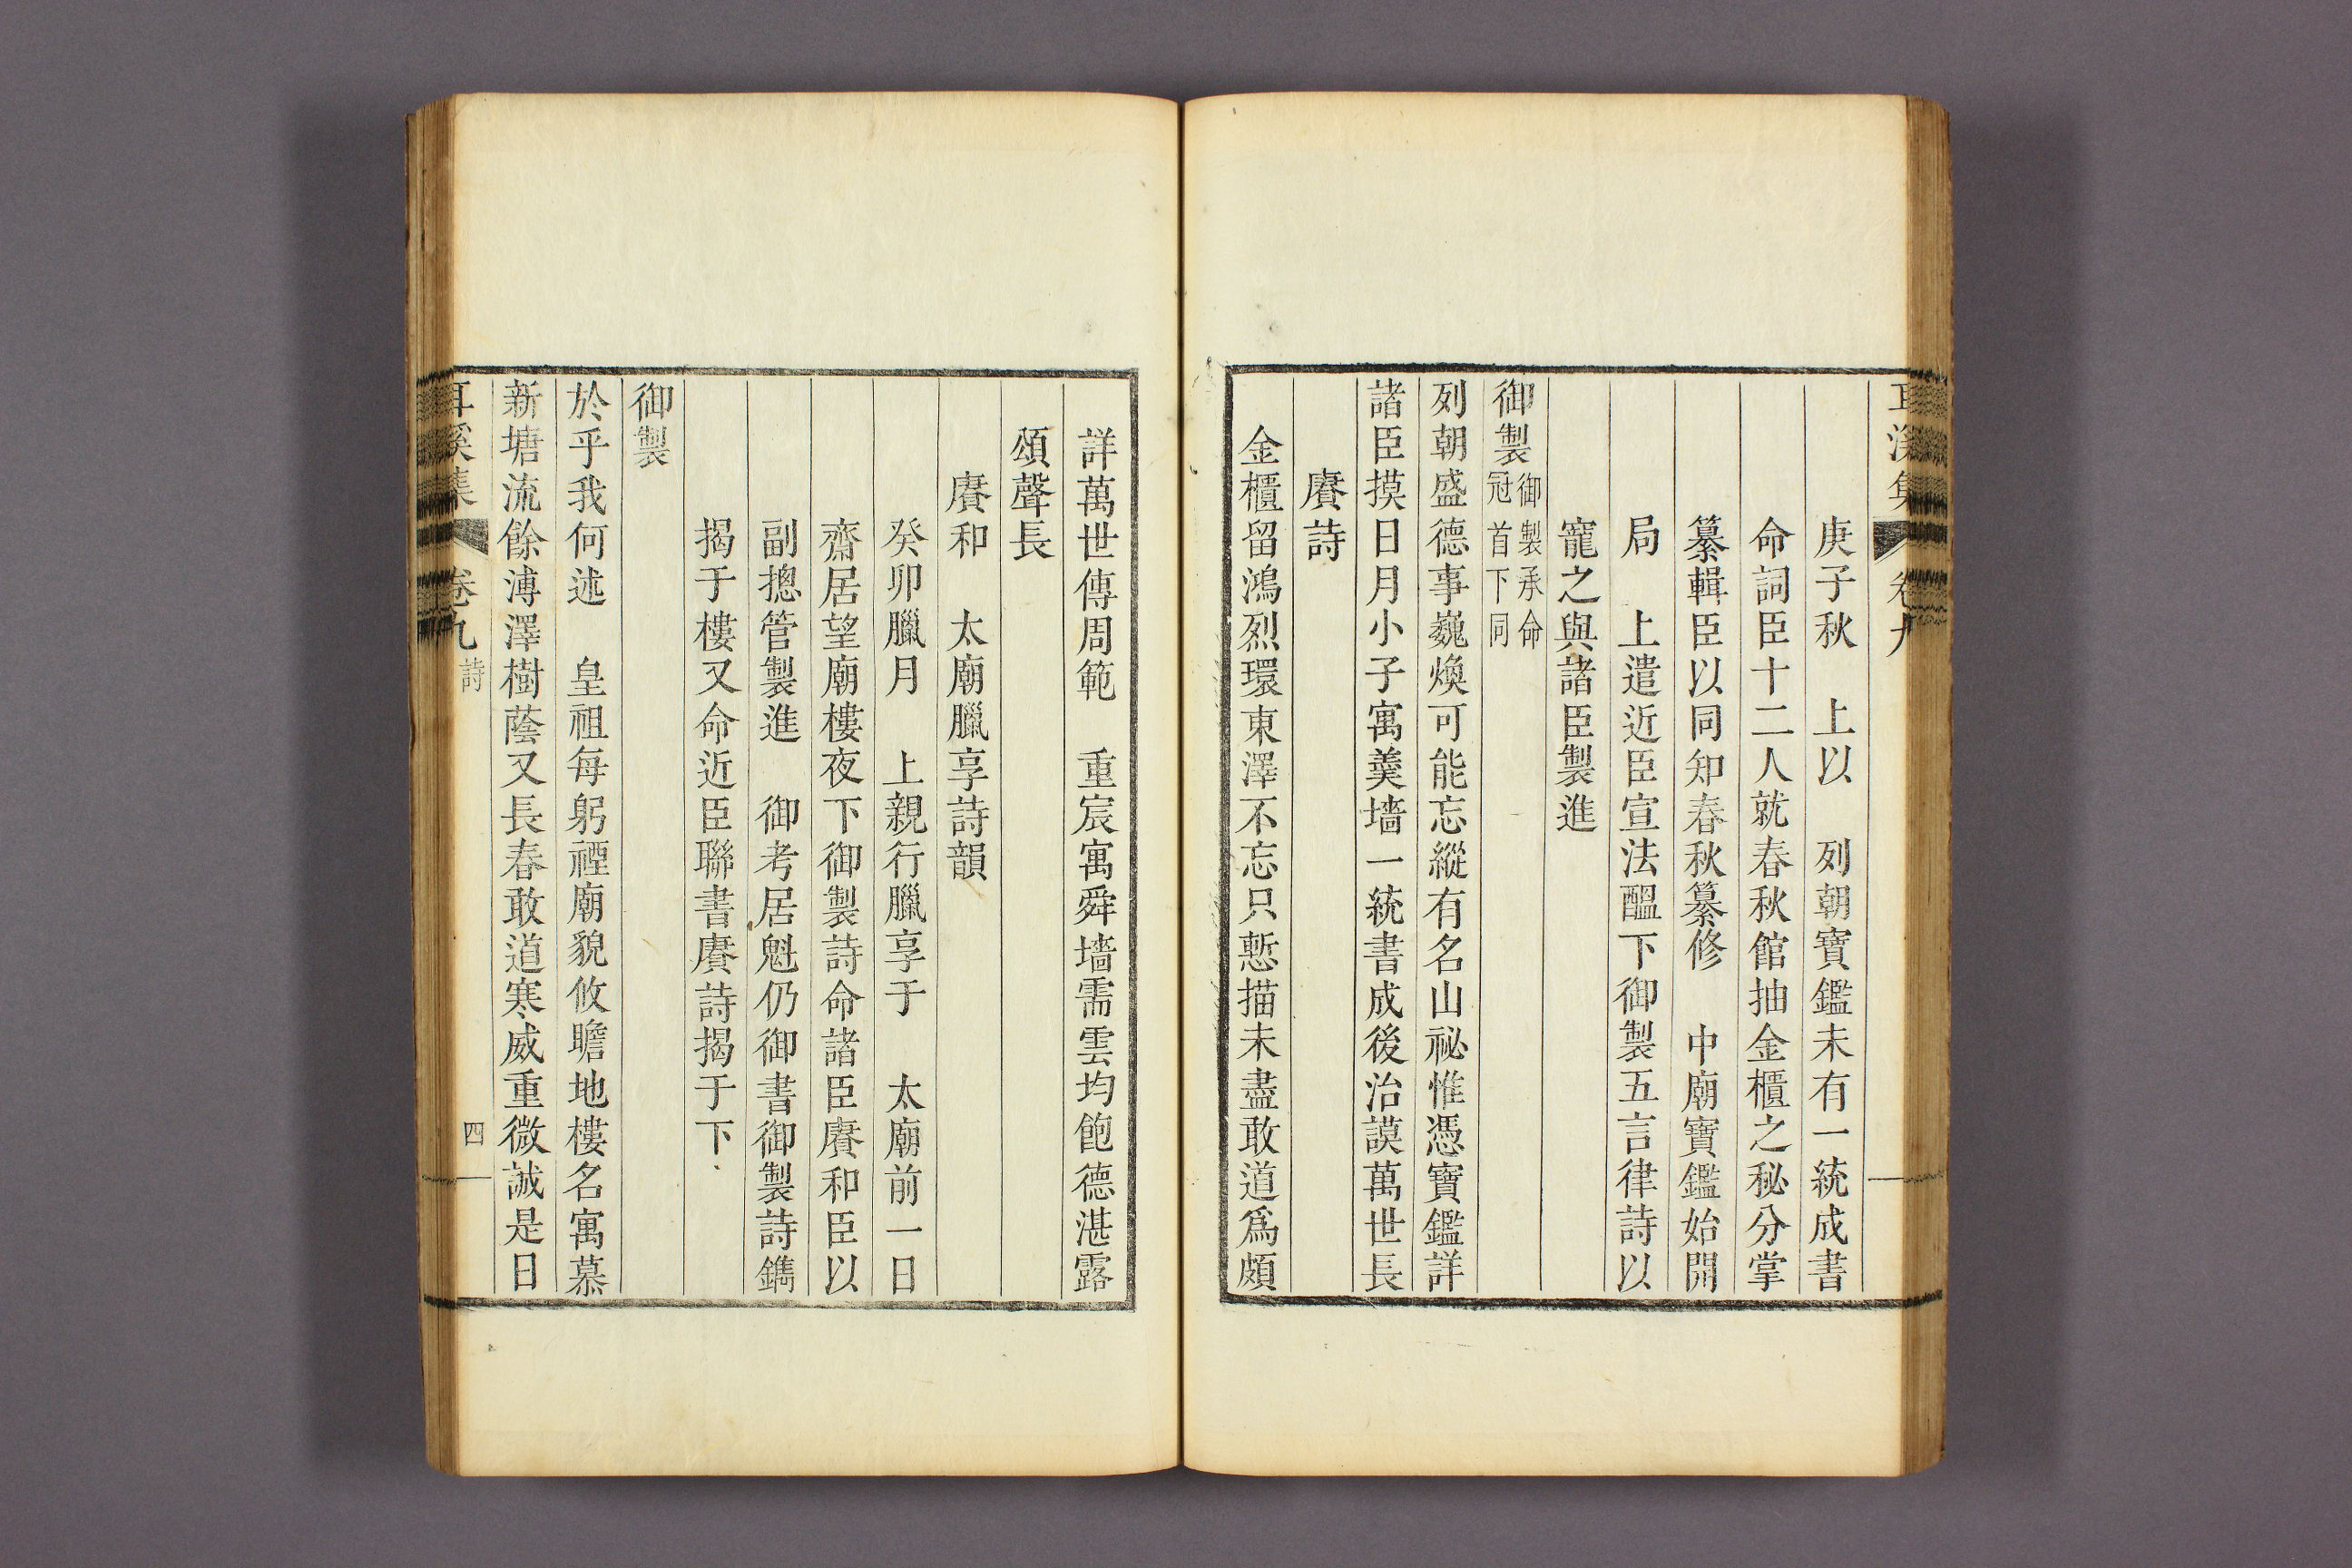 耳溪集 卷九
庚子秋 上以 列朝寶鑑未有一統成書
命詞臣十二人就春秋館抽金櫃之秘分掌
纂輯臣以同知春秋纂修 中廟寶鑑始開
局 上遣近臣宣法醞下御製五言律詩以
寵之與諸臣製進
御製御製承命冠首下同
列朝盛德事巍煥可能忘縱有名山祕惟憑寶鑑詳
諸臣摸日月小子寓羹墻一統書成後治謨萬世長
賡詩
金櫃留鴻烈環東澤不忘只慙描未盡敢道爲頗
詳萬世傳周範 重宸寓舜墻需雲均飽德湛露
頌聲長
賡和 太廟臘享詩韻
癸卯臘月 上親行臘享于 太廟前一日
齋居望廟樓夜下御製詩命諸臣賡和臣以
副摠管製進 御考居魁仍御書御製詩鐫
揭于樓又命近臣聯書賡詩揭于下
御製
於乎我何述 皇祖每躬禋廟貌攸瞻地樓名寓慕
新塘流餘溥澤樹蔭又長春敢道寒威重微誠是日
耳溪集 卷九 詩 四